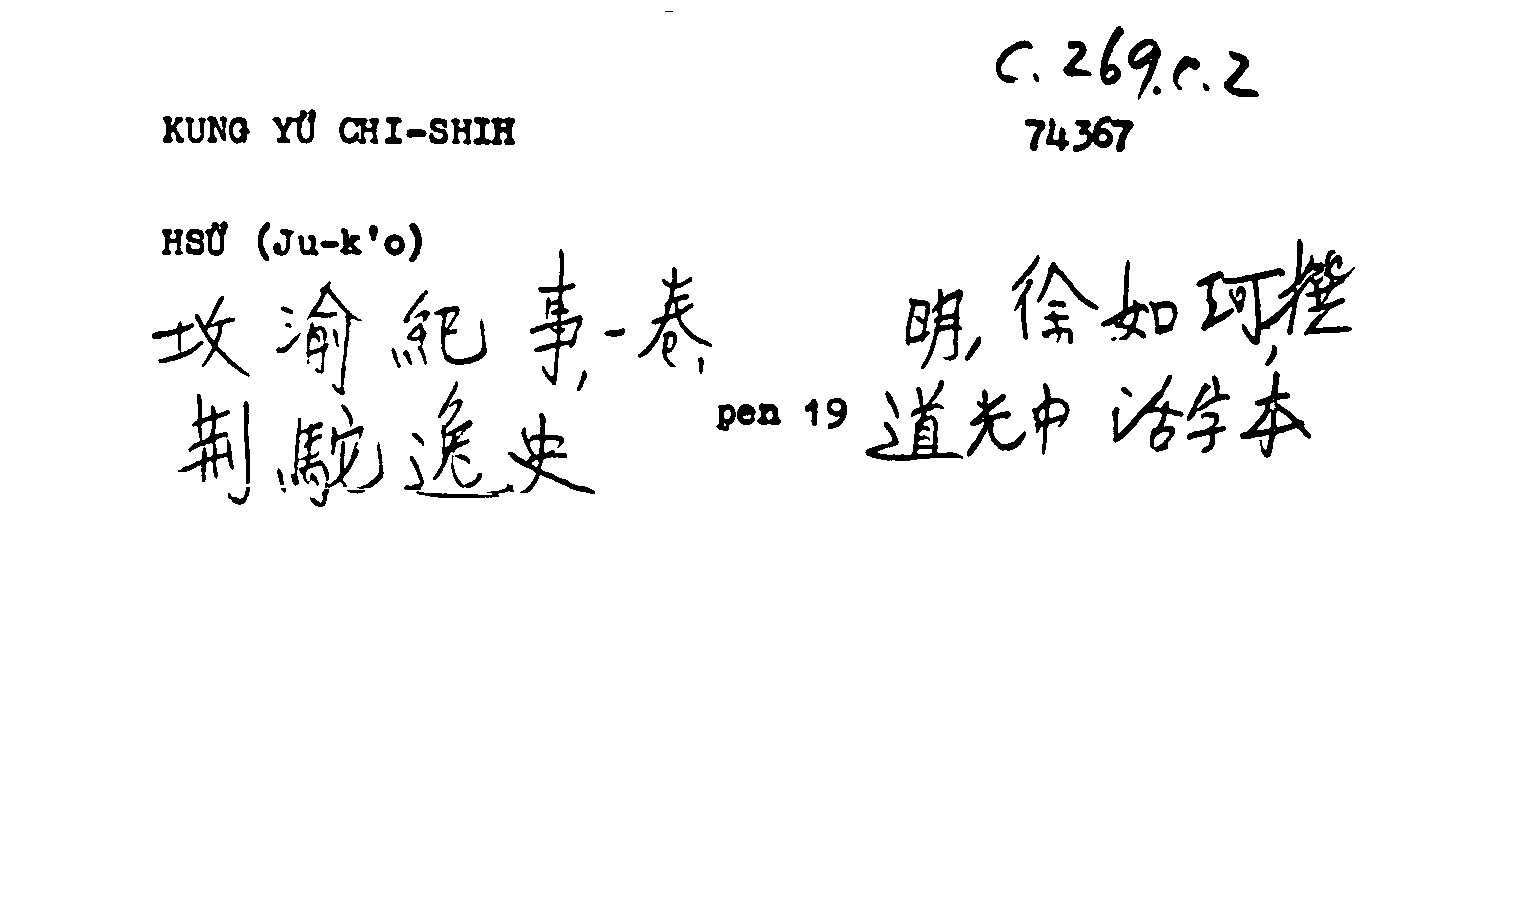 C. 269.c.2
KUNG YÜ CHI-SHIH 74367
HSÜ (Ju-k'o)
攻渝紀事,一卷, 明,徐如珂撰,
荆駝逸史 pen 19 道光中活字本